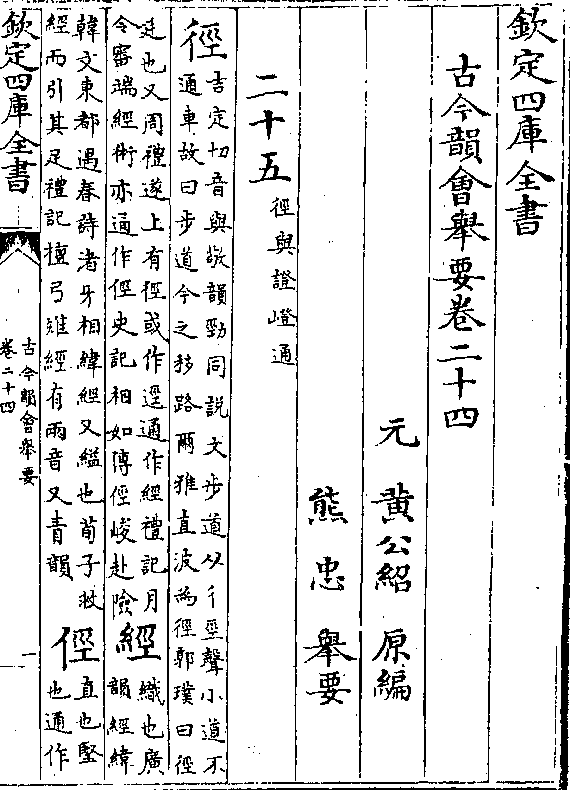 欽定四庫全書
古今韻會舉要卷二十四
元 黄公紹 原編
熊忠 舉要
二十五 徑與證嶝通
徑 吉定切音與敬韻勁同說文步道从彳巠聲小道不
通車故曰步道今之移路爾雅直波為徑郭璞曰徑
𨒪也又周禮遂上有徑或作逕通作經禮記月
令審端經術亦通作俓史記相如傳俓峻赴險
經 織也廣
韻經緯
韓文東都遇春詩渚牙相緯經又縊也荀子救
經而引其足禮記檀弓雉經有兩音又青韻
俓 直也堅
也通作
欽定四庫全書
古今韻會舉要
卷二十四
一